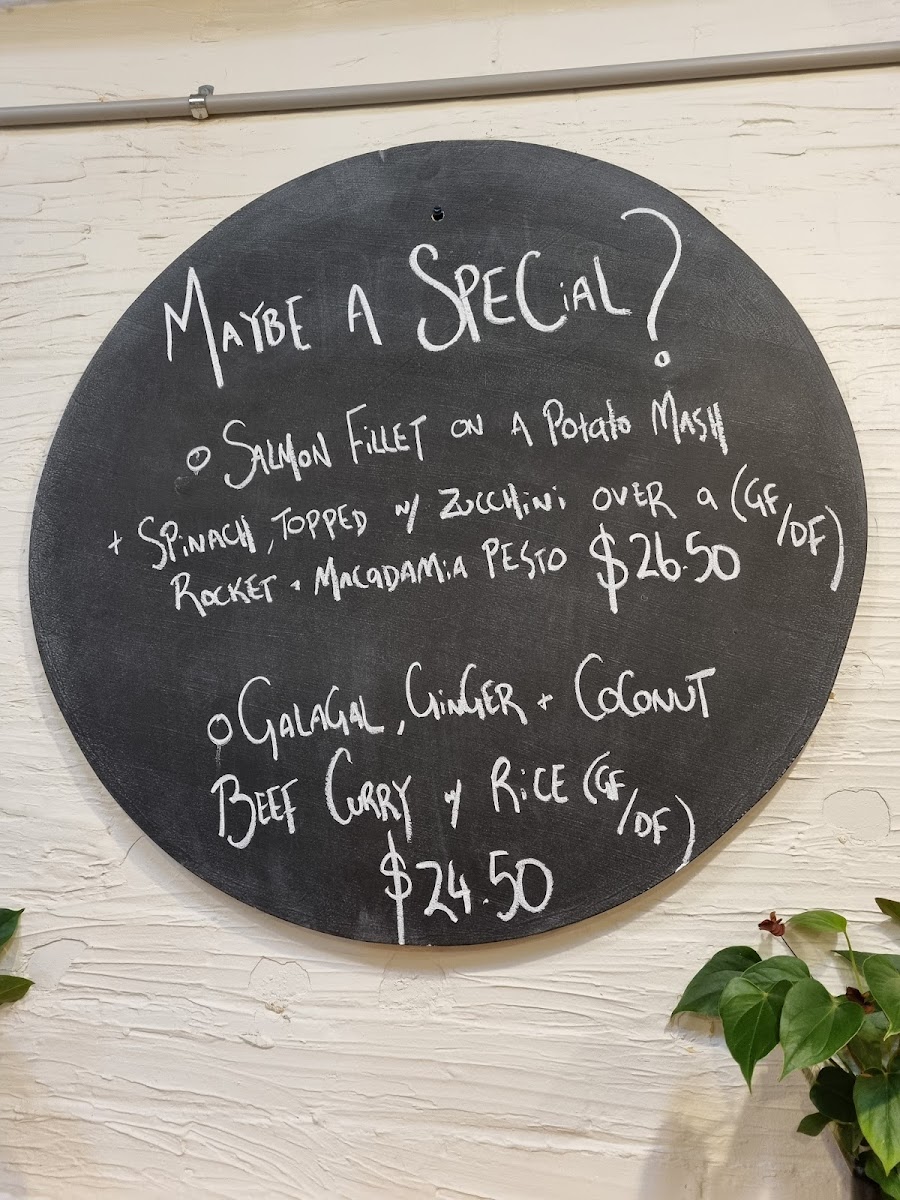 MAYBE A SPECiAL?
o SALMON FiLLET ON A Potato MASH
+ SPiNACH, TOPPED w/ ZUCCHiNi OVER a (GF/DF)
ROCKET + MACADAMiA PESTO $26.50
o GALAGAL, GiNGER + COCONUT
BEEF CURRY w/ RiCE (GF/DF)
$24.50